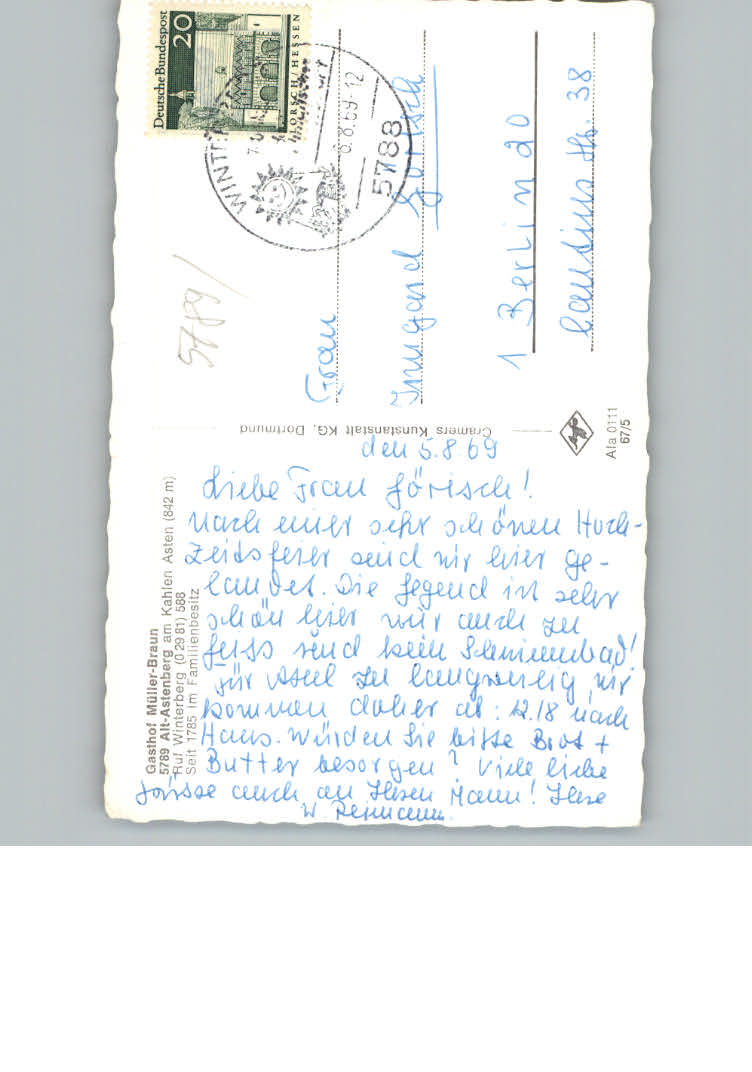 Deutsche Bundespost
20
LORSCH/HESSEN
WINTERBERG
6.8.69-12
5788
5789
Frau
Irmgard Görisch
1 Berlin 20
Cramers Kunstanstalt KG, Dortmund
Ala 0111
67/5
Gasthof Müller-Braun
5789 Alt-Astenberg am Kahlen Asten (842 m)
Ruf Winterberg (0 29 81) 588
Seit 1785 im Familienbesitz
den 5.8.69
Liebe Frau Görisch!
Nach einer sehr schönen Hoch-
zeitsfeier sind wir hier ge-
landet. Die Gegend ist sehr
schön hier nur auch zu
Fuss und kein Schwimmbad!
Für Axel zu langweilig, wir
kommen daher ab: 12.18 nach
Haus. Würden Sie bitte Brot +
Butter besorgen? Viele liebe
Grüsse auch an Ihren Mann! Ihre